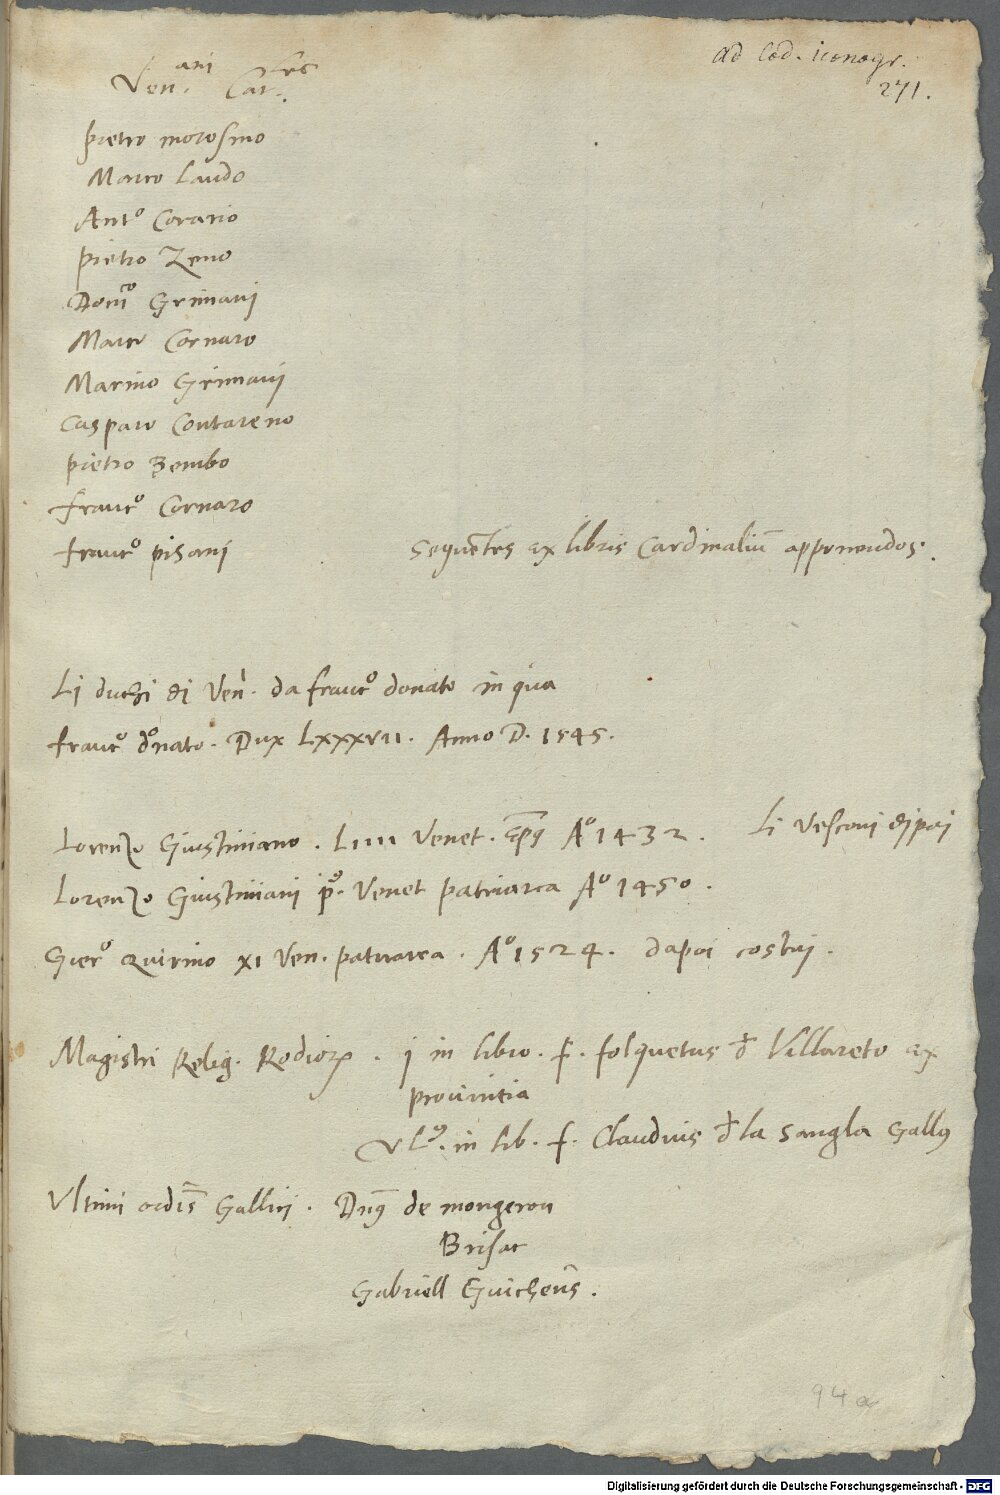 ad Cod. iconogr.
271.
Ven.ani Car.les
pietro morosino
Marco Lando
Anto Corario
pietro Zeno
Domco Grimani
Marco Cornaro
Marino Grimani
Casparo Contareno
pietro Bembo
francco Cornaro
francco pisani
sequētes ex libris Cardinaliū apponendos.
Li duchi di Ven. da francco donato in qua
francco donato. Dux LXXXVII. Anno D. 1545.
Lorenzo Giustiniano. LIIII Venet. ep̄s Ao 1432. Li Vesconi
Lorenzo Giustiniani po. Venet patriarca Ao 1450.
Giero Quirino XI Ven. patriarca. Ao 1524. dapoi costui.
Magistri Relig. Rodiorꝝ. j in libro. f. folquetus đ Villareto ex
provintia
vlo. in lib. f. Claudius đ la sangla Gallꝰ
Vltimi ordīs Gallici. Dnꝰ de mongeron
Brisac
Gabriell Guichens.
94a
Digitalisierung gefördert durch die Deutsche Forschungsgemeinschaft - DFG